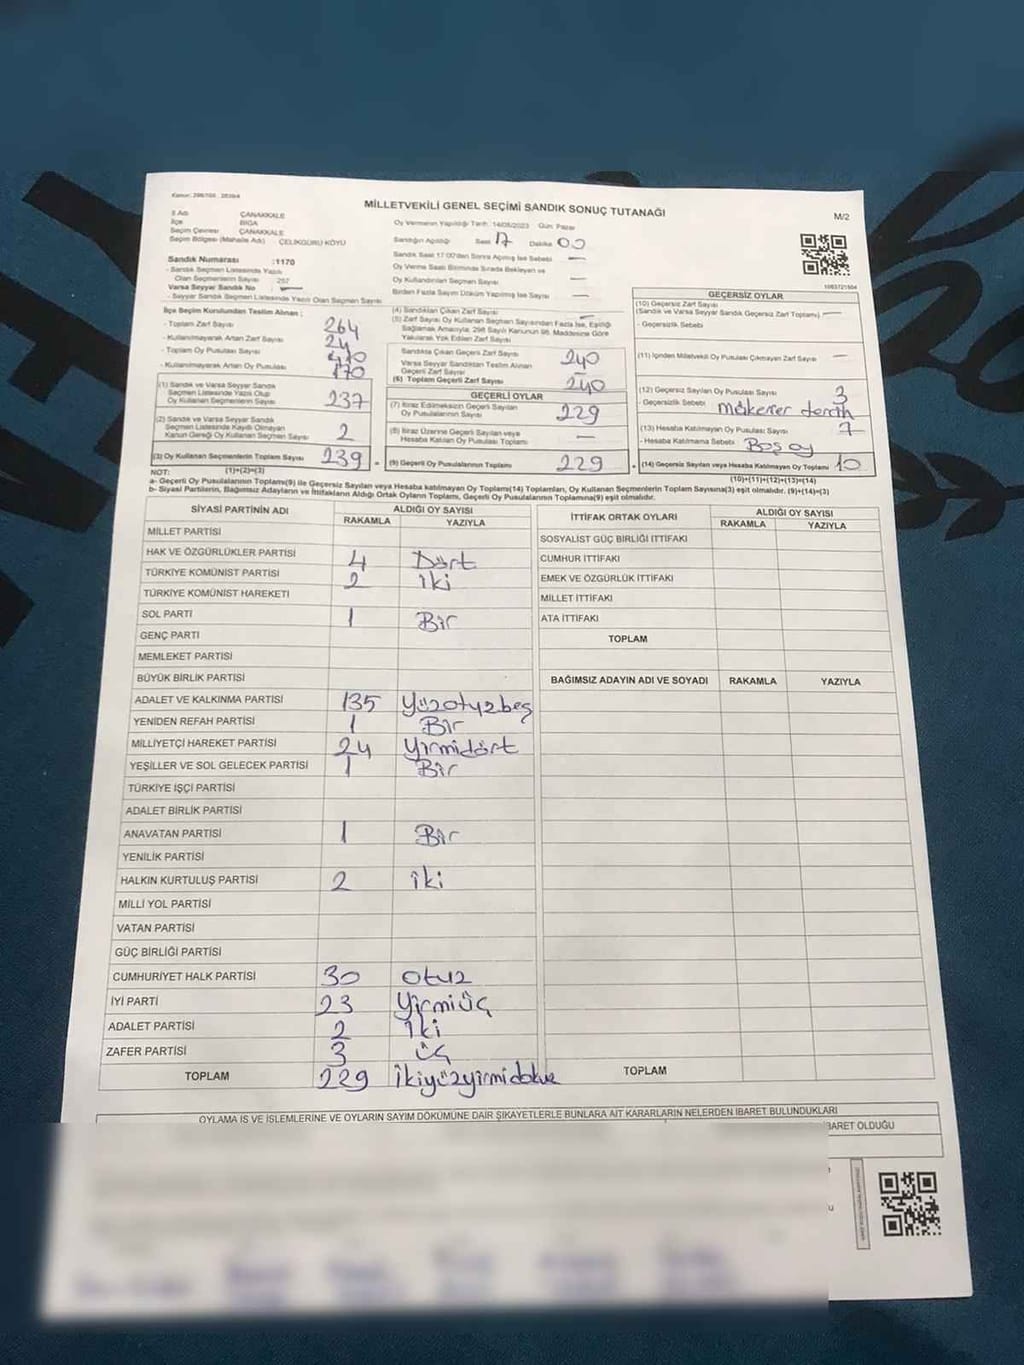 MİLLETVEKİLİ GENEL SEÇİMİ SANDIK SONUÇ TUTANAĞI
M/2
İl Adı ÇANAKKALE
İlçe BİGA
Seçim Çevresi ÇANAKKALE
Seçim Bölgesi (Mahalle Adı) ÇELİKGÜRÜ KÖYÜ
Oy Vermenin Yapıldığı Tarih: 14/05/2023 Gün: Pazar
Sandığın Açıldığı Saat 17 Dakika 00
Sandık Saat 17:00'den Sonra Açılmış İse Sebebi —
Oy Verme Saati Bitiminde Sırada Bekleyen ve
Oy Kullandırılan Seçmen Sayısı —
Birden Fazla Sayım Döküm Yapılmış İse Sayısı —
Sandık Numarası :1170
- Sandık Seçmen Listesinde Yazılı
Olan Seçmenlerin Sayısı : 257
Varsa Seyyar Sandık No : —
- Seyyar Sandık Seçmen Listesinde Yazılı Olan Seçmen Sayısı
İlçe Seçim Kurulundan Teslim Alınan ;
- Toplam Zarf Sayısı 264
- Kullanılmayarak Artan Zarf Sayısı 24
- Toplam Oy Pusulası Sayısı
- Kullanılmayarak Artan Oy Pusulası 170
(1) Sandık ve Varsa Seyyar Sandık
Seçmen Listesinde Yazılı Olup
Oy Kullanan Seçmenlerin Sayısı 237
(2) Sandık ve Varsa Seyyar Sandık
Seçmen Listesinde Kayıtlı Olmayan
Kanun Gereği Oy Kullanan Seçmen Sayısı 2
(3) Oy Kullanan Seçmenlerin Toplam Sayısı 239
(1)+(2)=(3)
(4) Sandıktan Çıkan Zarf Sayısı —
(5) Zarf Sayısı Oy Kullanan Seçmen Sayısından Fazla İse, Eşitliği
Sağlamak Amacıyla; 298 Sayılı Kanunun 98. Maddesine Göre
Yakılarak Yok Edilen Zarf Sayısı
Sandıkta Çıkan Geçerli Zarf Sayısı 240
Varsa Seyyar Sandıktan Teslim Alınan
Geçerli Zarf Sayısı —
(6) Toplam Geçerli Zarf Sayısı 240
GEÇERLİ OYLAR
(7) İtiraz Edilmeksizin Geçerli Sayılan
Oy Pusulalarının Sayısı 229
(8) İtiraz Üzerine Geçerli Sayılan veya
Hesaba Katılan Oy Pusulası Toplamı —
(9) Geçerli Oy Pusulalarının Toplamı 229
1063721504
GEÇERSİZ OYLAR
(10) Geçersiz Zarf Sayısı
(Sandık ve Varsa Seyyar Sandık Geçersiz Zarf Toplamı) —
- Geçersizlik Sebebi
(11) İçinden Milletvekili Oy Pusulası Çıkmayan Zarf Sayısı —
(12) Geçersiz Sayılan Oy Pusulası Sayısı 3
- Geçersizlik Sebebi
(13) Hesaba Katılmayan Oy Pusulası Sayısı 7
- Hesaba Katılmama Sebebi Boş oy
(14) Geçersiz Sayılan veya Hesaba Katılmayan Oy Toplamı 10
(10)+(11)+(12)+(13)=(14)
NOT:
a- Geçerli Oy Pusulalarının Toplamı(9) ile Geçersiz Sayılan veya Hesaba Katılmayan Oy Toplamı(14) Toplamları, Oy Kullanan Seçmenlerin Toplam Sayısına(3) eşit olmalıdır. (9)+(14)=(3)
b- Siyasi Partilerin, Bağımsız Adayların ve İttifakların Aldığı Ortak Oyların Toplamı, Geçerli Oy Pusulalarının Toplamına(9) eşit olmalıdır.
SİYASİ PARTİNİN ADI ALDIĞI OY SAYISI
RAKAMLA YAZIYLA
MİLLET PARTİSİ
HAK VE ÖZGÜRLÜKLER PARTİSİ 4 Dört
TÜRKİYE KOMÜNİST PARTİSİ 2 iki
TÜRKİYE KOMÜNİST HAREKETİ
SOL PARTİ 1 Bir
GENÇ PARTİ
MEMLEKET PARTİSİ
BÜYÜK BİRLİK PARTİSİ
ADALET VE KALKINMA PARTİSİ 135 Yüzotuzbeş
YENİDEN REFAH PARTİSİ 1 Bir
MİLLİYETÇİ HAREKET PARTİSİ 24 Yirmidört
YEŞİLLER VE SOL GELECEK PARTİSİ 1 Bir
TÜRKİYE İŞÇİ PARTİSİ
ADALET BİRLİK PARTİSİ
ANAVATAN PARTİSİ 1 Bir
YENİLİK PARTİSİ
HALKIN KURTULUŞ PARTİSİ 2 iki
MİLLİ YOL PARTİSİ
VATAN PARTİSİ
GÜÇ BİRLİĞİ PARTİSİ
CUMHURİYET HALK PARTİSİ 30 Otuz
İYİ PARTİ 23 Yirmiüç
ADALET PARTİSİ 2 İki
ZAFER PARTİSİ 3 üç
TOPLAM 229
İTTİFAK ORTAK OYLARI ALDIĞI OY SAYISI
RAKAMLA YAZIYLA
SOSYALİST GÜÇ BİRLİĞİ İTTİFAKI
CUMHUR İTTİFAKI
EMEK VE ÖZGÜRLÜK İTTİFAKI
MİLLET İTTİFAKI
ATA İTTİFAKI
TOPLAM
BAĞIMSIZ ADAYIN ADI VE SOYADI RAKAMLA YAZIYLA
TOPLAM
OYLAMA İŞ VE İŞLEMLERİNE VE OYLARIN SAYIM DÖKÜMÜNE DAİR ŞİKAYETLERLE BUNLARA AİT KARARLARIN NELERDEN İBARET BULUNDUKLARI
İBARET OLDUĞU